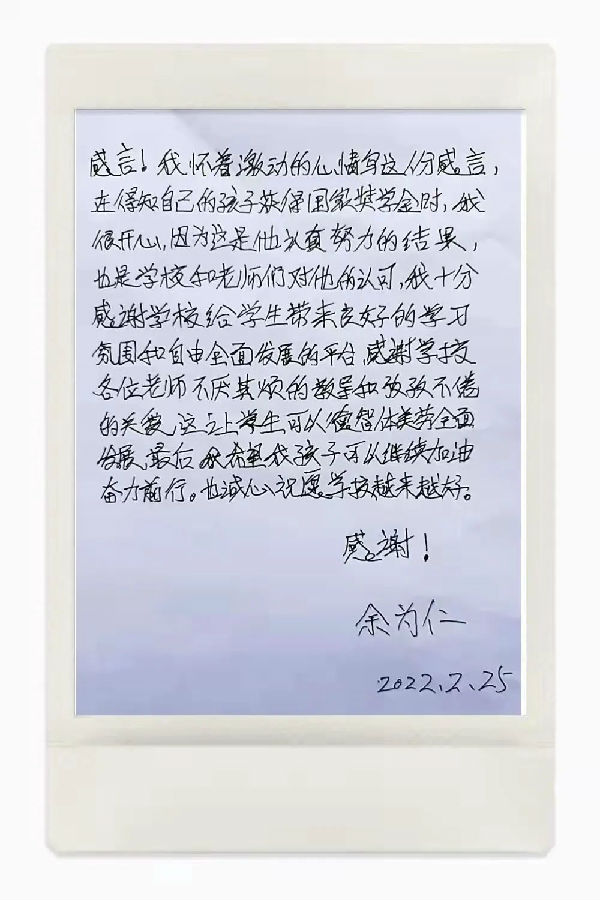 感言！我怀着激动的心情写这份感言，
在得知自己的孩子获得国家奖学金时，我
很开心，因为这是他认真努力的结果，
也是学校和老师们对他的认可，我十分
感谢学校给学生带来良好的学习
氛围和自由全面发展的平台，感谢学校
各位老师不厌其烦的教导和孜孜不倦
的关爱，这让学生可以德智体美劳全面
发展，最后，我希望我孩子可以继续加油
奋力前行。也诚心祝愿学校越来越好。
感谢！
余为仁
2022.2.25